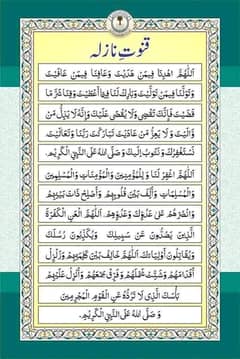 قنوتِ نازلہ
اَللّٰهُمَّ اهْدِنَا فِيْمَنْ هَدَيْتَ وَعَافِنَا فِيْمَنْ عَافَيْتَ
وَتَوَلَّنَا فِيْمَنْ تَوَلَّيْتَ وَبَارِكْ لَنَا فِيْمَا اَعْطَيْتَ وَقِنَا شَرَّ مَا
قَضَيْتَ فَاِنَّكَ تَقْضِيْ وَلَا يُقْضٰى عَلَيْكَ وَاِنَّهٗ لَا يَذِلُّ مَنْ
وَّالَيْتَ وَلَا يَعِزُّ مَنْ عَادَيْتَ تَبَارَكْتَ رَبَّنَا وَتَعَالَيْتَ
نَسْتَغْفِرُكَ وَنَتُوْبُ اِلَيْكَ وَصَلَّى اللهُ عَلَى النَّبِيِّ الْكَرِيْمِ۔
اَللّٰهُمَّ اغْفِرْ لَنَا وَلِلْمُؤْمِنِيْنَ وَالْمُؤْمِنَاتِ وَالْمُسْلِمِيْنَ
وَالْمُسْلِمَاتِ وَاَلِّفْ بَيْنَ قُلُوْبِهِمْ وَاَصْلِحْ ذَاتَ بَيْنِهِمْ
وَانْصُرْهُمْ عَلٰى عَدُوِّكَ وَعَدُوِّهِمْ اَللّٰهُمَّ الْعَنِ الْكَفَرَةَ
الَّذِيْنَ يَصُدُّوْنَ عَنْ سَبِيْلِكَ وَيُكَذِّبُوْنَ رُسُلَكَ
وَيُقَاتِلُوْنَ اَوْلِيَائَكَ اَللّٰهُمَّ خَالِفْ بَيْنَ كَلِمَتِهِمْ وَزَلْزِلْ
اَقْدَامَهُمْ وَشَتِّتْ شَمْلَهُمْ وَفَرِّقْ جَمْعَهُمْ وَاَنْزِلْ عَلَيْهِمْ
بَأْسَكَ الَّذِيْ لَا تَرُدُّهٗ عَنِ الْقَوْمِ الْمُجْرِمِيْنَ
وَصَلَّى اللهُ عَلَى النَّبِيِّ الْكَرِيْمِ۔